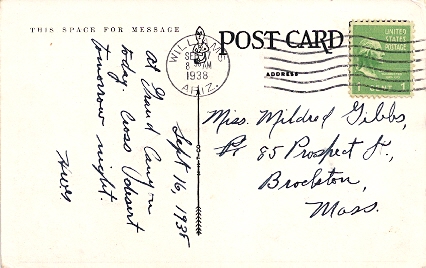 THIS SPACE FOR MESSAGE
Sept 16, 1938
At Grand Canyon
today. Cross desert
tomorrow night
WILLIAMS
8 AM
1938
ARIZ.
POST CARD
ADDRESS
UNITED
STATES
POSTAGE
1 1
Miss. Mildred Gibbs,
85 Prospect St.,
Brockton,
Mass.